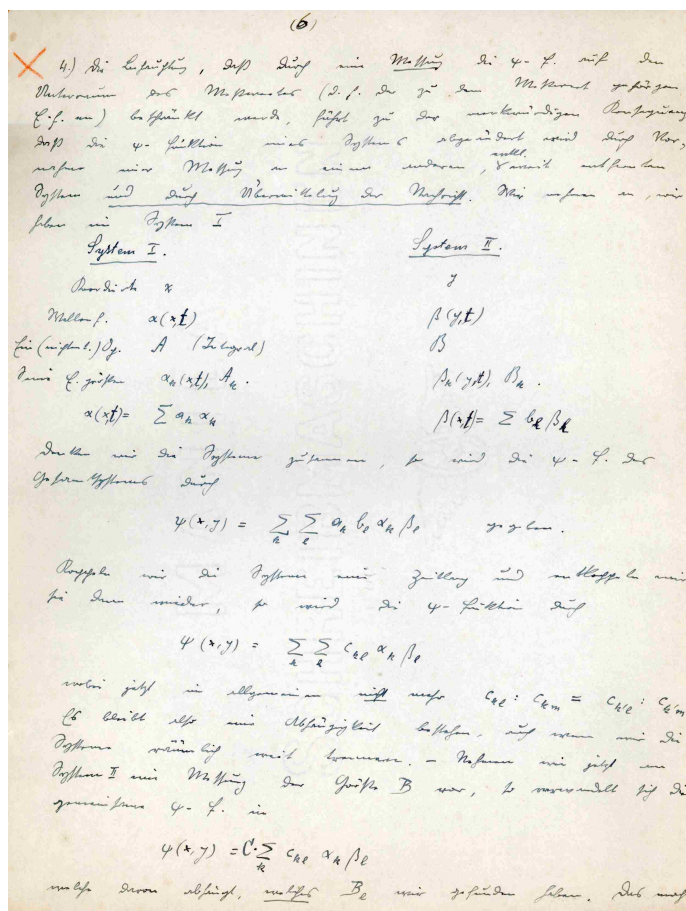 (6)
4.) Die Behauptung, daß durch eine Messung die ψ-f. auf den
Unterraum des Meßwertes (d.h. der zu dem Meßwert gehörigen
E.f.en) beschränkt werde, führt zu der merkwürdigen Konsequenz
daß die ψ-funktion eines Systems abgeändert wird durch Vor-
nahme einer Messung an einem anderen, evtl. weit entfernten
System und durch Übermittelung der Nachricht. Wir nehmen an, wir
haben ein System I
System I. System II.
Koordinate x y
Wellenf. α(x,t) β(y,t)
Ein (nichtent.) Op. A (Integral) B
Seine E. größen α_k(x,t), A_k. β_k(y,t), B_k.
α(x,t) = ∑ a_k α_k β(x,t) = ∑ b_l β_l
Denken wir die Systeme zusammen, so wird die ψ-f. des
Gesamtsystems durch
ψ(x,y) = ∑_k ∑_l a_k b_l α_k β_l gegeben.
Koppeln wir die Systeme eine Zeitlang und entkoppeln wir
sie dann wieder, so wird die ψ-funktion durch
ψ(x,y) = ∑_k ∑_l c_kl α_k β_l
wobei jetzt im allgemeinen nicht mehr c_kl : c_km = c_k'l : c_k'm
Es bleibt also eine Abhängigkeit bestehen, auch wenn wir die
Systeme räumlich weit trennen. – Nehmen wir jetzt am
System II eine Messung der Größe B vor, so verwandelt sich die
gemeinsame ψ-f. in
ψ(x,y) = C·∑_k c_kl α_k β_l
welche davon abhängt, welches B_l wir gefunden haben. Das